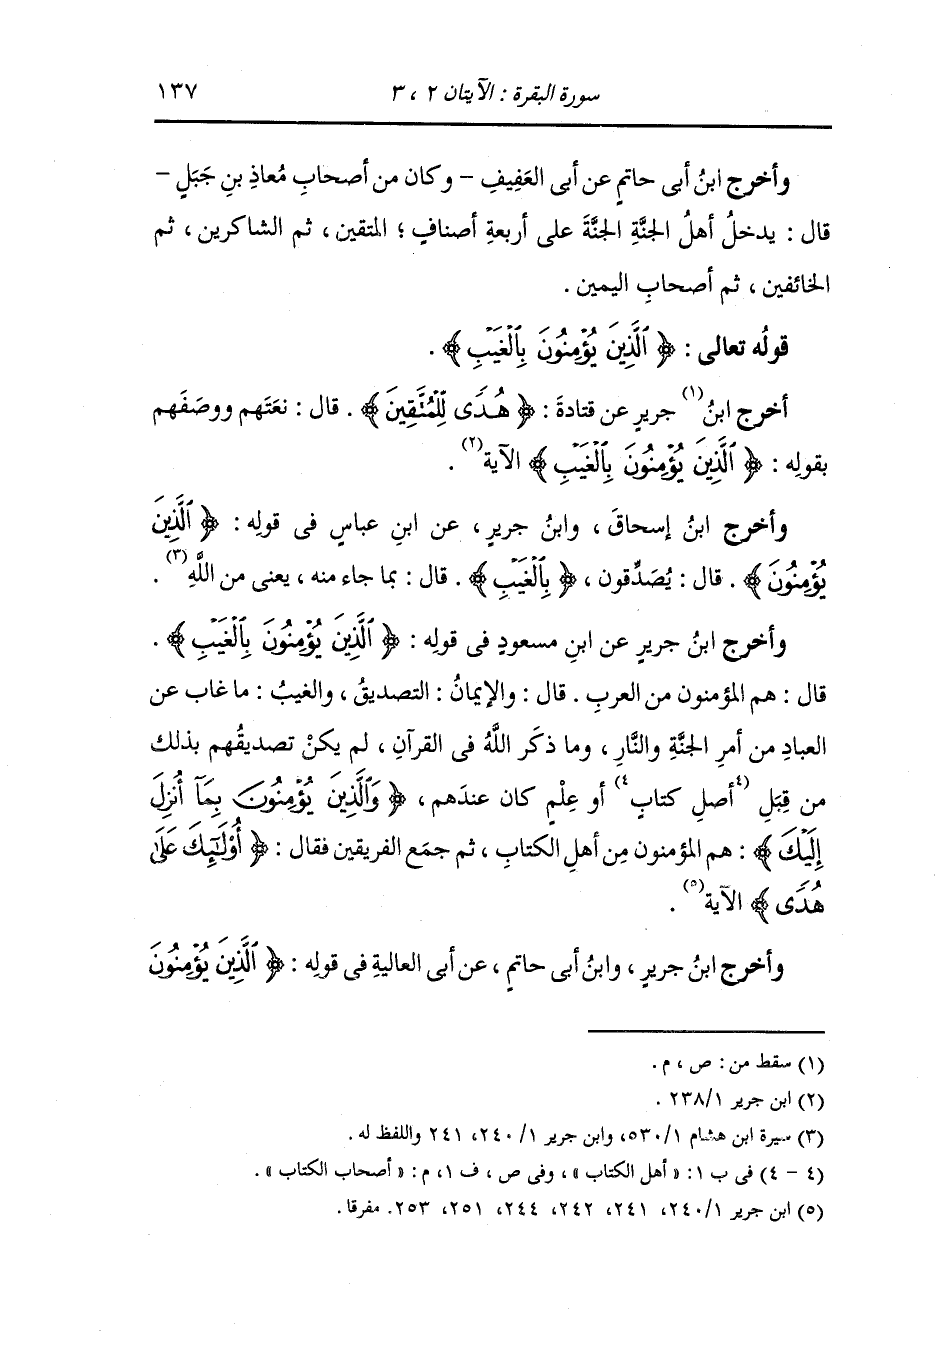 سورة البقرة : الآيتان ٢ ، ٣ ١٣٧
وأخرج ابنُ أبى حاتمٍ عن أبى العَفِيفِ - وكان من أصحابِ مُعاذِ بنِ جَبَلٍ -
قال : يدخلُ أهلُ الجنَّةِ الجنَّةَ على أربعةِ أصنافٍ ؛ المتقين ، ثم الشاكرين ، ثم
الخائفين ، ثم أصحابِ اليمين .
قولُه تعالى : ﴿ ٱلَّذِينَ يُؤْمِنُونَ بِٱلْغَيْبِ ﴾ .
أخرج ابنُ(١) جريرٍ عن قتادةَ : ﴿ هُدًى لِّلْمُتَّقِينَ ﴾ . قال : نعَتَهم ووصَفَهم
بقولِه : ﴿ ٱلَّذِينَ يُؤْمِنُونَ بِٱلْغَيْبِ ﴾ الآية(٢) .
وأخرج ابنُ إسحاقَ ، وابنُ جريرٍ ، عن ابنِ عباسٍ فى قولِه : ﴿ ٱلَّذِينَ
يُؤْمِنُونَ ﴾ . قال : يُصَدِّقون ، ﴿ بِٱلْغَيْبِ ﴾ . قال : بما جاء منه ، يعنى من اللَّهِ(٣) .
وأخرج ابنُ جريرٍ عن ابنِ مسعودٍ فى قولِه : ﴿ ٱلَّذِينَ يُؤْمِنُونَ بِٱلْغَيْبِ ﴾ .
قال : هم المؤمنون من العربِ . قال : والإيمانُ : التصديقُ ، والغيبُ : ما غاب عن
العبادِ من أمرِ الجنَّةِ والنَّارِ ، وما ذكَر اللَّهُ فى القرآنِ ، لم يكنْ تصديقُهم بذلك
من قِبَلِ (٤أصلِ كتابٍ٤) أو عِلْمٍ كان عندَهم ، ﴿ وَٱلَّذِينَ يُؤْمِنُونَ بِمَآ أُنزِلَ
إِلَيْكَ ﴾ : هم المؤمنون مِن أهلِ الكتابِ ، ثم جمَع الفريقين فقال : ﴿ أُو۟لَـٰٓئِكَ عَلَىٰ
هُدًى ﴾ الآية(٥) .
وأخرج ابنُ جريرٍ ، وابنُ أبى حاتمٍ ، عن أبى العاليةِ فى قولِه : ﴿ ٱلَّذِينَ يُؤْمِنُونَ
(١) سقط من : ص ، م .
(٢) ابن جرير ٢٣٨/١ .
(٣) سيرة ابن هشام ٥٣٠/١، وابن جرير ٢٤٠/١، ٢٤١ واللفظ له .
(٤ - ٤) فى ب ١: « أهل الكتاب » ، وفى ص ، ف ١، م : « أصحاب الكتاب » .
(٥) ابن جرير ٢٤٠/١، ٢٤١، ٢٤٢، ٢٤٤، ٢٥١، ٢٥٣. مفرقا .